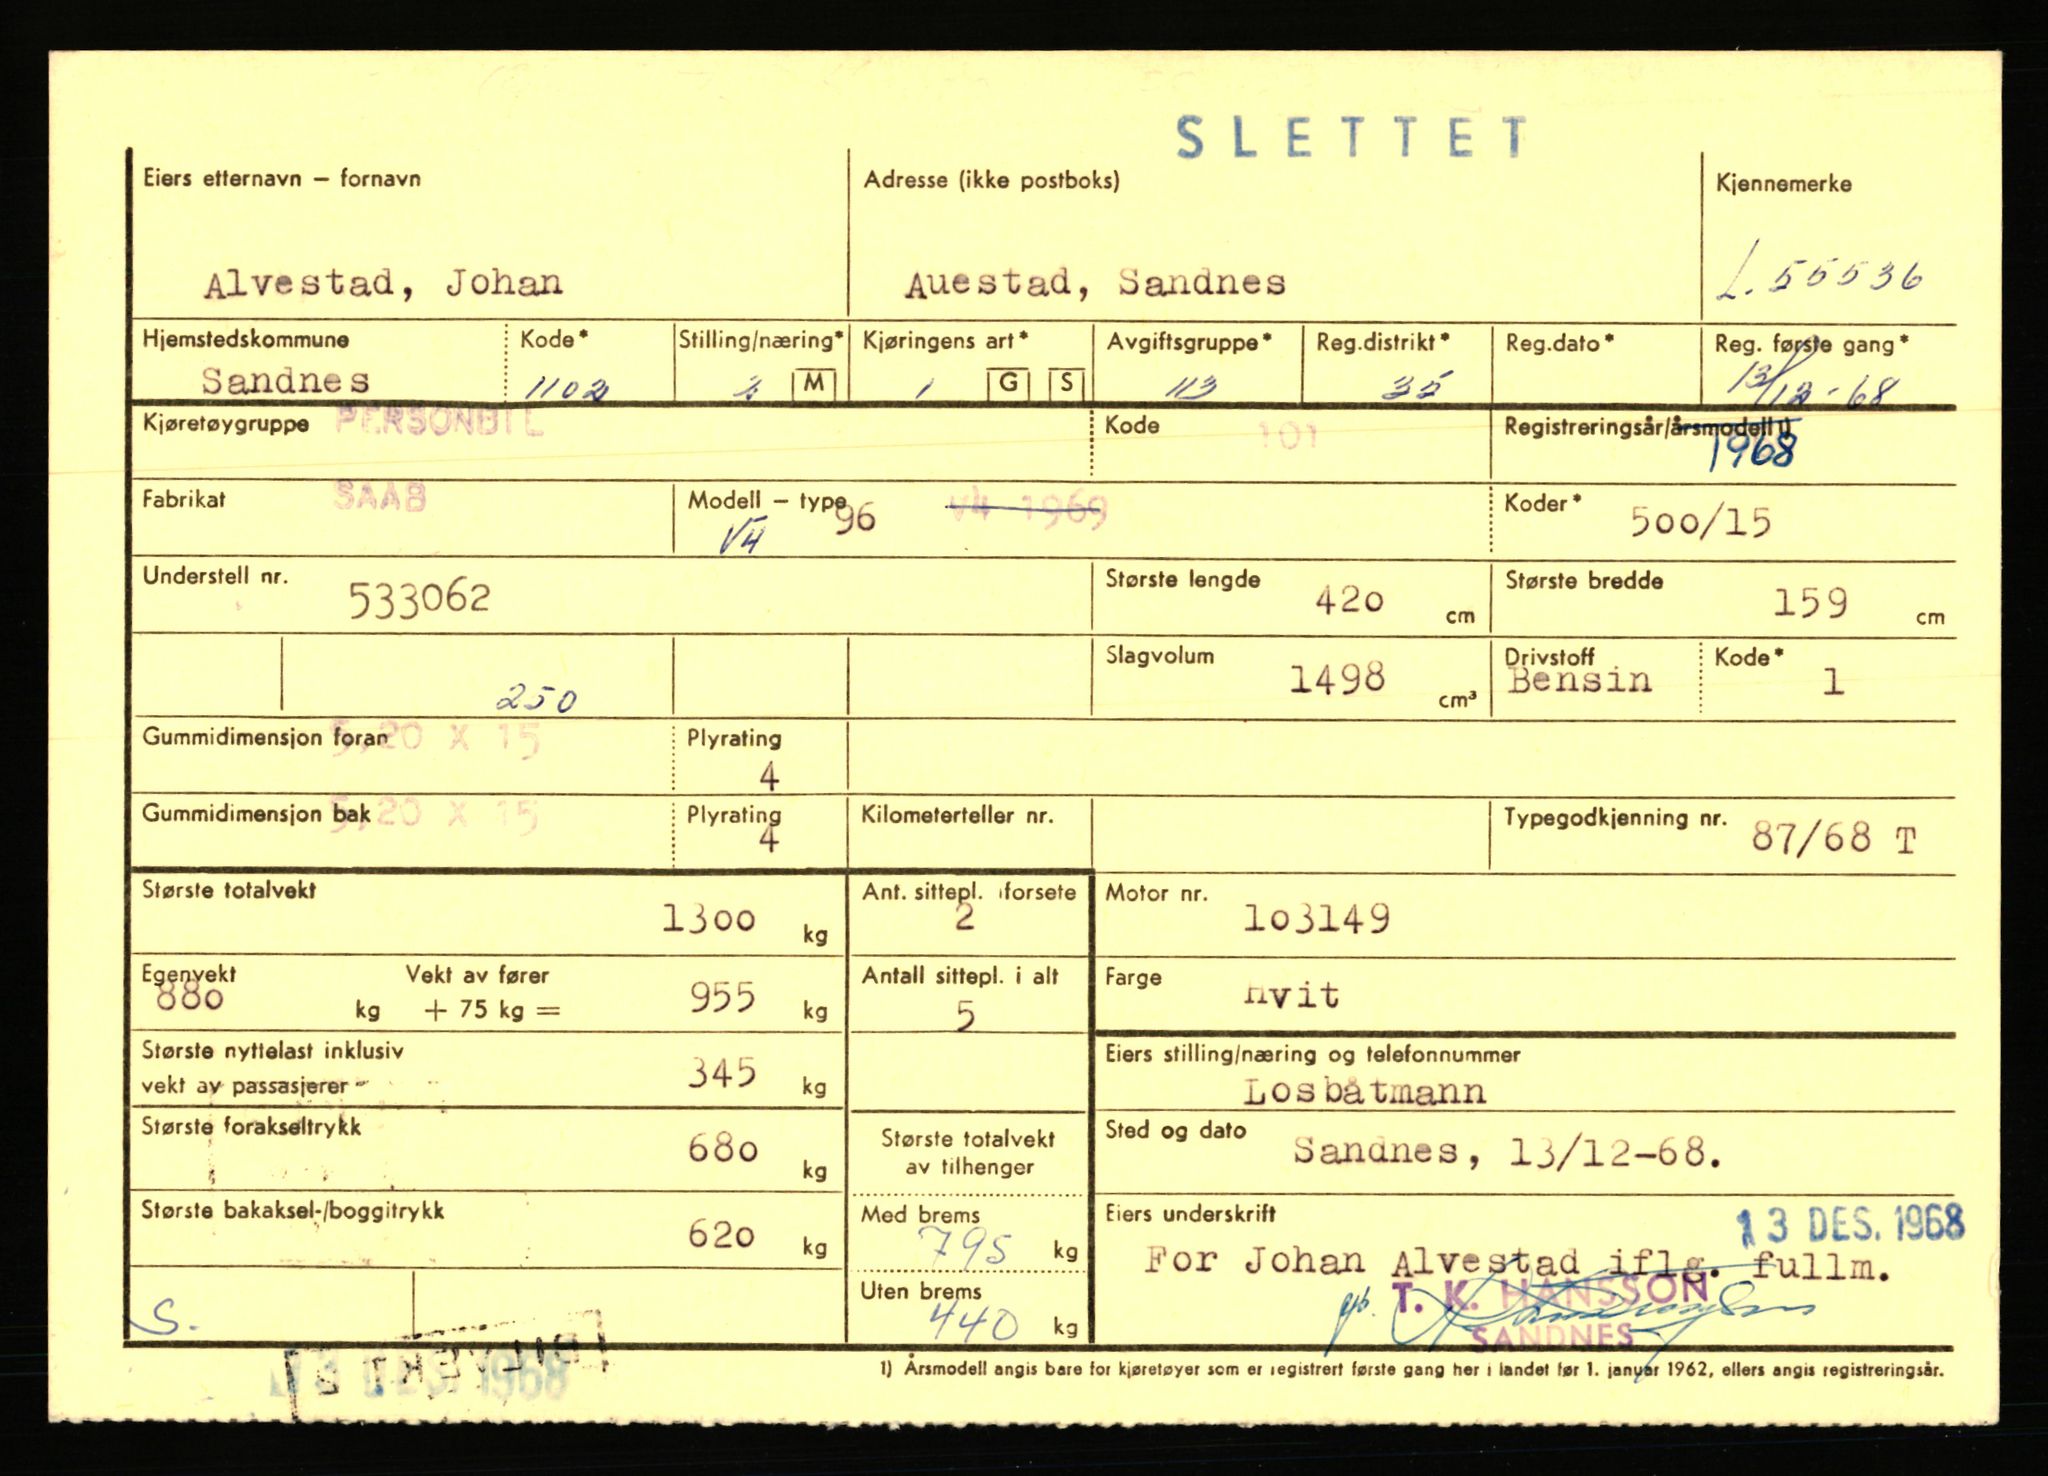 SLETTET
Eiers etternavn – fornavn
Adresse (ikke postboks)
Kjennemerke
Alvestad, Johan
Auestad, Sandnes
L. 55536
Hjemstedskommune
Kode*
Stilling/næring*
Kjøringens art*
Avgiftsgruppe*
Reg.distrikt*
Reg.dato*
Reg. første gang*
Sandnes
1102
M
1
G
S
113
35
13/12-68
Kjøretøygruppe
PERSONBIL
Kode
101
Registreringsår/årsmodell 1)
1968
Fabrikat
SAAB
Modell – type
96
V4 1969
V4
Koder*
500/15
Understell nr.
533062
Største lengde
420
cm
Største bredde
159
cm
250
Slagvolum
1498
cm³
Drivstoff
Bensin
Kode*
1
Gummidimensjon foran
5,20 X 15
Plyrating
4
Gummidimensjon bak
5,20 X 15
Plyrating
4
Kilometerteller nr.
Typegodkjenning nr.
87/68 T
Største totalvekt
1300
kg
Ant. sittepl. i forsete
2
Motor nr.
103149
Egenvekt
880
kg
Vekt av fører
+ 75 kg =
955
kg
Antall sittepl. i alt
5
Farge
Hvit
Største nyttelast inklusiv
vekt av passasjerer
345
kg
Eiers stilling/næring og telefonnummer
Losbåtmann
Største forakseltrykk
680
kg
Største totalvekt
av tilhenger
Sted og dato
Sandnes, 13/12-68.
Største bakaksel-/boggitrykk
620
kg
Med brems
795
kg
Eiers underskrift
13 DES. 1968
For Johan Alvestad iflg. fullm.
T. K. HANSSON
SANDNES
S.
Uten brems
440
kg
13 DES. 1968
1) Årsmodell angis bare for kjøretøyer som er registrert første gang her i landet før 1. januar 1962, ellers angis registreringsår.